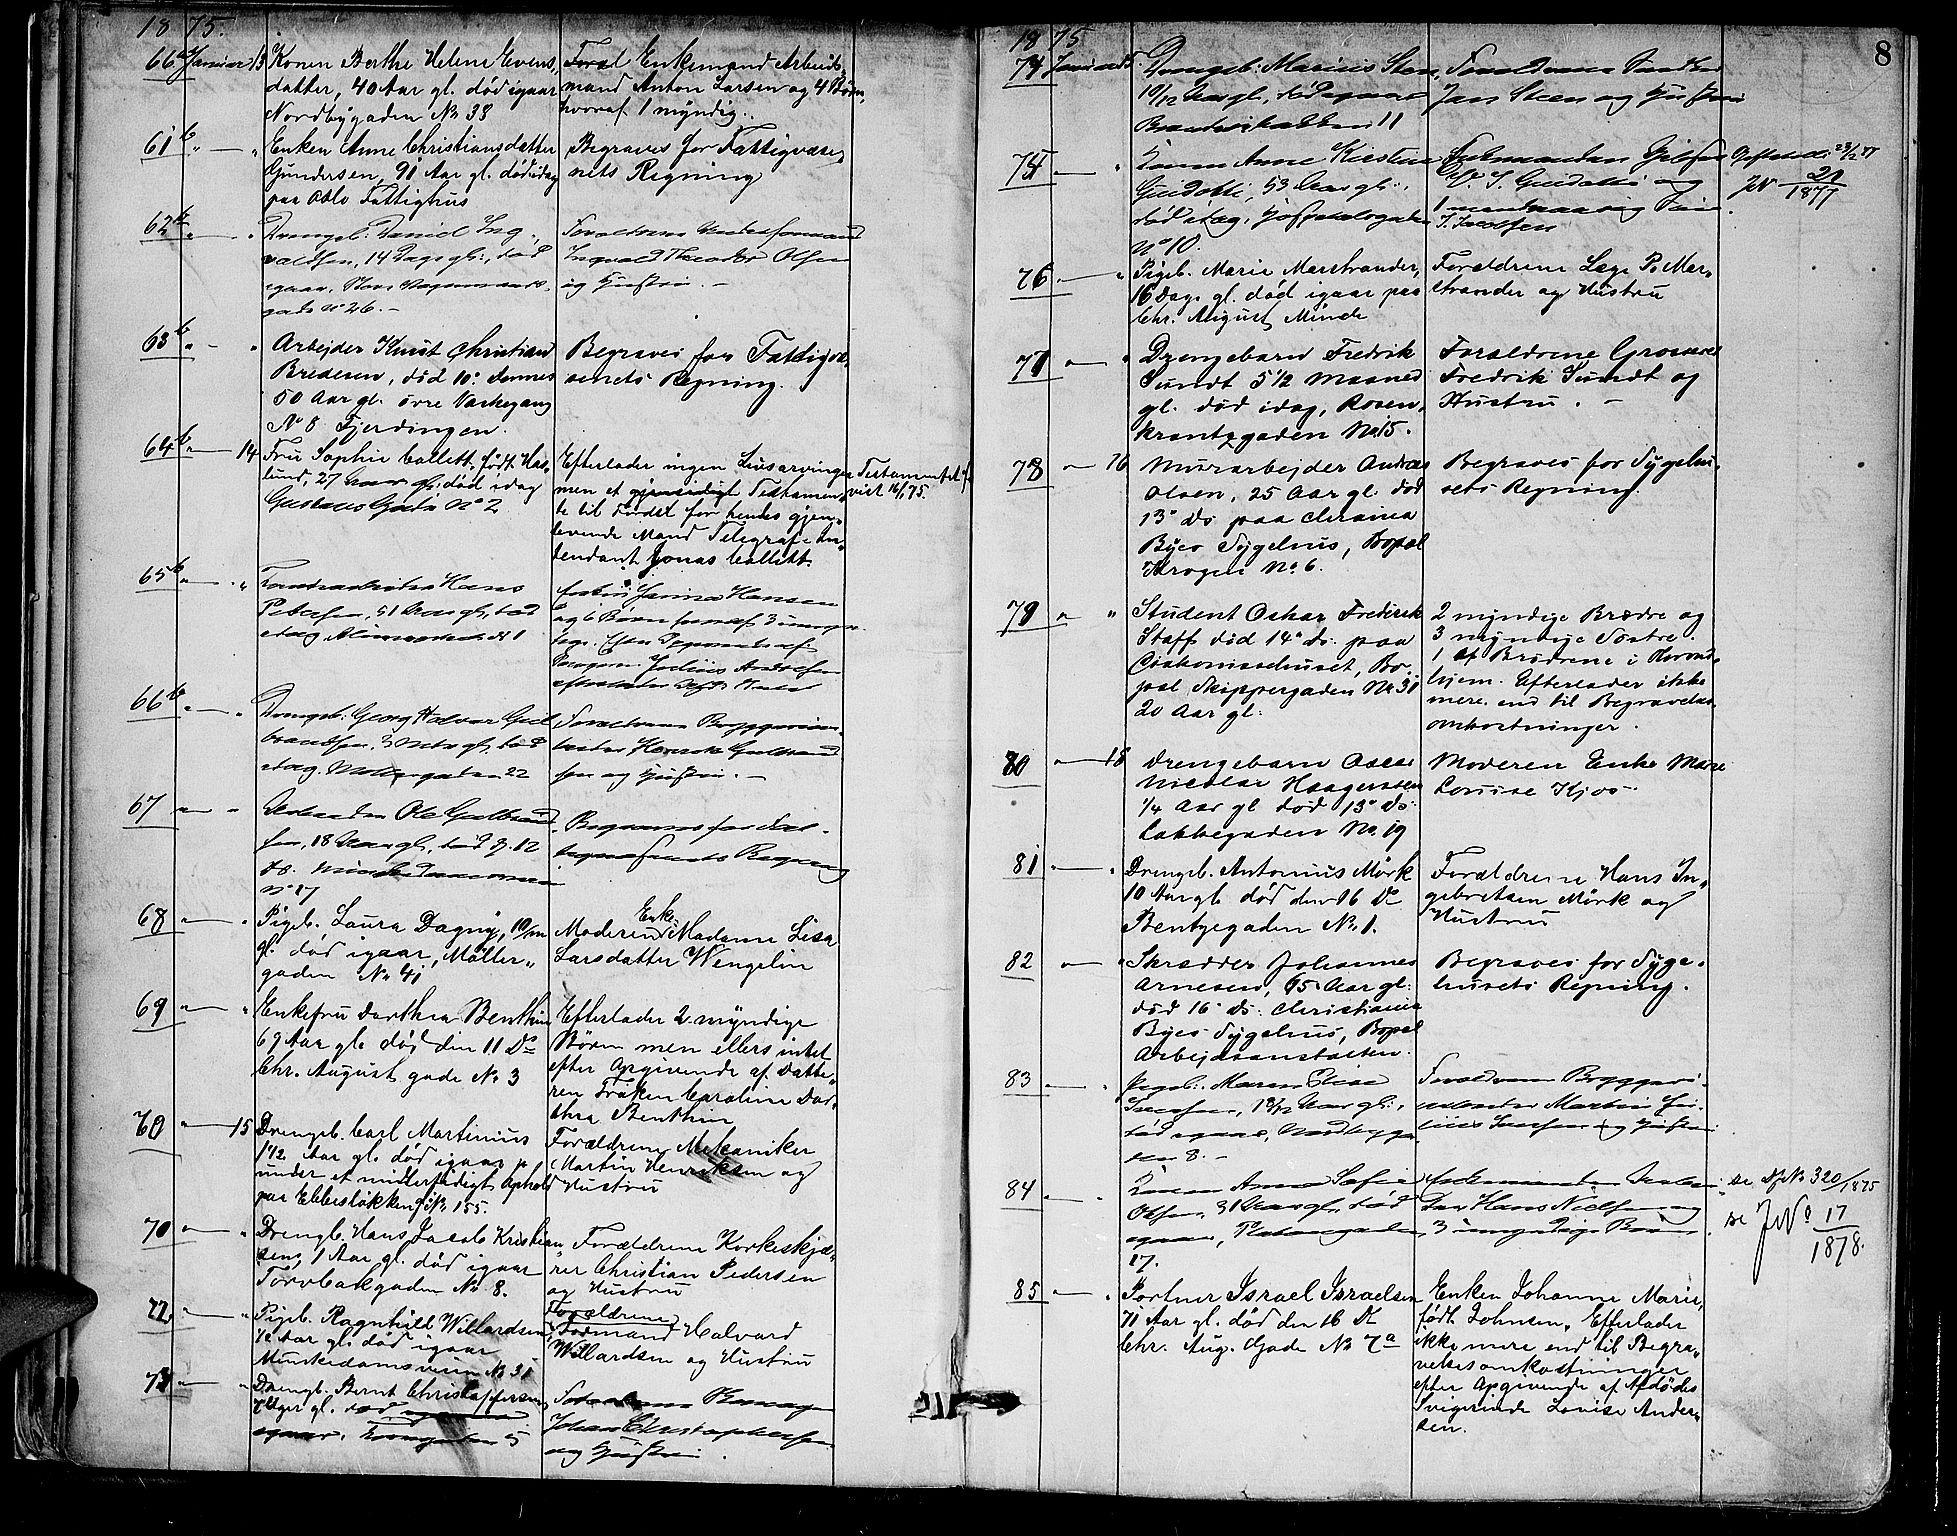 1875.
66 b Januar 13 Konen Berthe Helene Evens,
datter, 40 Aar gl. död igaar
Nordbygaden No 38
Foral Enkemand Arbeids
mand Anton Larsen og 4 Börn,
hvoraf 1 myndig.
61 b " — " Enken Anne Christiansdatter
Gundersen, 91 Aar gl. död idag
paa Oslo Fattighus
Begraves for Fattigvæse,
nets Regning
62 b " — " Drengeb. Daniel Ing,
valdsen, 14 Dage gl., död
igaar, Store
gade No 26. —
Forældrene
Ingvald Theodor Olsen
og Hustru. —
63 b " — " Arbejder Knut Christian
Bredesen, död 10de dennes
50 Aar gl. övre Vaskegang
No 8 Fjerdingen.
Begraves for Fattigvæ,
senets Regning.
64 b " — 14 Fru Sophie Collett, födt Has,
lund, 27 Aar gl. död idag
Gustavs Gade No 2
Efterlader ingen Livsarvinger
men et gjensidigt Testamen,
te til Fordel for hendes gjen,
levende Mand Telegrafin,
tendant Jonas Collett.
Testamentet f
vist 16/1 75.
65 b " — " Hans
Petersen, 51 Aar gl., död
idag No 1
Enken Janina Hansen
og 6 Börn hvoraf 3 umyn
dige. Efter
Julius Andersen
66 b " — " Drengeb. Georg Halvor Gul
brandsen, 3 gl., död
idag. Möllergaden 22
Forældrene Bryggeriar,
beider Henrik Gulbrand
sen og Hustru. —
67 " — " Ole Gulbrand
sen, 18 Aar gl., död d. 12
ds.
No 17
Begraves for
Regning
68 " — " Pigeb. Laura Dagny, 10/m
gl. död igaar, Möller,
gaden No 41
Moderen Enke Madame Lisa
Larsdatter Wengelin
69 " — " Enkefru Dorthea Benthin
69 Aar gl. död den 11 Ds
Chr. August gade No 3
Efterlader 2 myndige
Börn men ellers intet
efter Opgivende af Datte,
ren Fröken Caroline Dor,
thea Benthin
70 " — 15 Drengeb. Carl Martinius
1 1/2 Aar gl. död igaar
under et midlerfidigt Ophold
paa Ebbeslökken No 155.
Forældrene Mekaniker
Martin Henriksen og
Hustru
70 " — " Drengb. Hans Jacob Kristian
sen, 1 Aar gl. död igaar
Torvbakgaden No 8.
Forældrene Korkeskjæ,
rer Christian Pedersen
og Hustru
72, " — " Pigeb. Ragnhild Willardsen,
1/2 Aar gl. död igaar
Munkedamsveien No 31
Forældrene
Formand Halvard
Willardsen og Hustru
73 " — " Drengb. Bernt Christoffersen,
7 Uger gl. död
igaar. 5
Forældrene
Johan Christophersen
og Hustru.
8
1875
74 Januar 15. Drengeb. Marius Steen,
10/12 Aar gl., död igaar
11
Forældrene
Jan Steen og Hustru
75 " — " Konen Anne Kirstine
Guidotti, 53 Aar gl.,
död idag, Hospitalsgaden
No 10.
Enkemanden
Guidotti og
1
J. Jacobsen
23/2 77
JNo 21/1877
76 " — " Pigeb. Marie Marstrander,
16 Dage gl. död igaar paa
Chr. August Minde
Forældrene Læge P. Mar,
strander og Hustru
77 " — " Drengebarn Fredrik
Sundt 5 1/2 Maaned
gl. död idag, Rosen,
krantzgaden No 15.
Forældrene Grosserer
Fredrik Sundt og
Hustru. —
78 " — 16 Murarbejder Andreas
Olsen, 25 Aar gl. död
13de ds paa Chrania
Byes Sygehus, Bopæl
Krogen No 6.
Begraves for Sygehu,
sets Regning.
79 " " Student Oskar Frederik
Staff död 14de ds. paa
Diakonissehuset, Bo,
pæl Skippergaden No 31
20 Aar gl.
2 myndige Brödre og
3 myndige Söstre.
1 af Brödrene i Thrond,
hjem. Efterlader ikke
mere end til Begravelses,
omkostninger.
80 " — 18 Drengebarn Oscar
Nicolai Haagensen
1/4 Aar gl död 13de ds.
Lakkegaden No 19
Moderen Enke Marie
Lovise Kjos —
81 " — " Drengeb. Antonius Mörk
10 Aar gl. död den 16 Ds
Bentzegaden No 1.
Forældrene Hans In,
gebretsen Mörk og
Hustru
82 " — " Skrædder Johannes
Arnesen, 65 Aar gl.
död 16de ds. Christiania
Byes Sygehus, Bopæl
Arbejdsanstalten.
Begraves for Syge,
husets Regning.
83 " — " Pigeb. Maren Elise
Jensen, 1 8/12 Aar gl.,
död igaar, Nordbyga
den 8. —
Forældrene Bryggeri,
arbeider Martin Ju,
lius Jensen og Hustru
84 " — " Konen Anne Sofie
Olsen, 31 Aar gl., död
igaar,
17.
Enkemanden
Hans Nielsen og
3 umyndige Börn.
se No 320/1875
se JNo 17/1878.
85 " — " Portner Israel Israelsen
71 Aar gl. död den 16 Ds
Chr. Aug. Gade No 7a
Enken Johanne Marie,
födt Johnsen, Efterlader
ikke mere end til Begra,
velsesomkostninger
efter Opgivende af Afdödes
Svigerinde Lovise Ander,
sen.